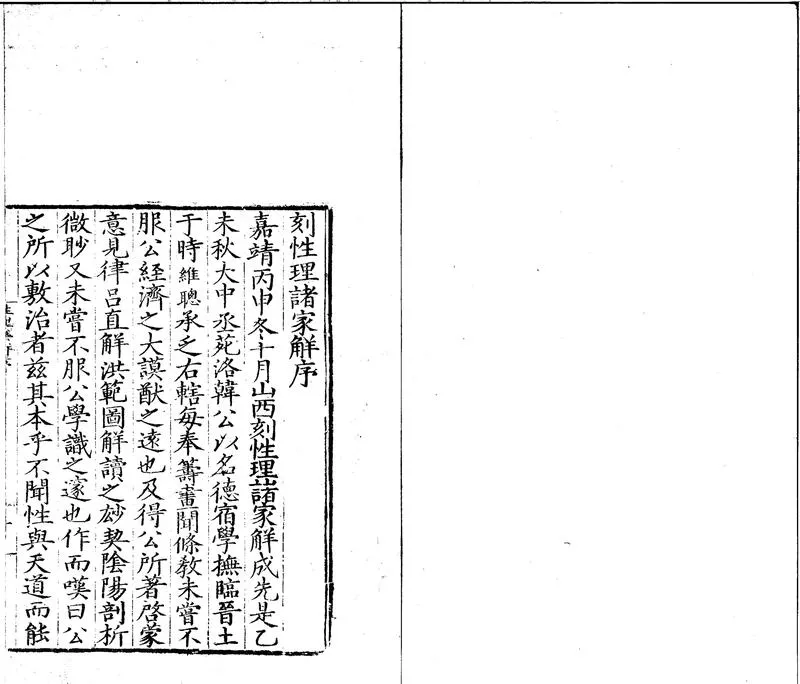 刻性理諸家解序
嘉靖丙申冬十月山西刻性理諸家解成先是乙
未秋大中丞苑洛韓公以名德宿學撫臨晉土
于時維聰承乏右轄每奉籌畫聞條敎未嘗不
服公經濟之大謨猷之遠也及得公所著啓蒙
意見律呂直解洪範圖解讀之玅契陰陽剖析
微眇又未嘗不服公學識之邃也作而嘆曰公
之所以敷治者兹其本乎不聞性與天道而能